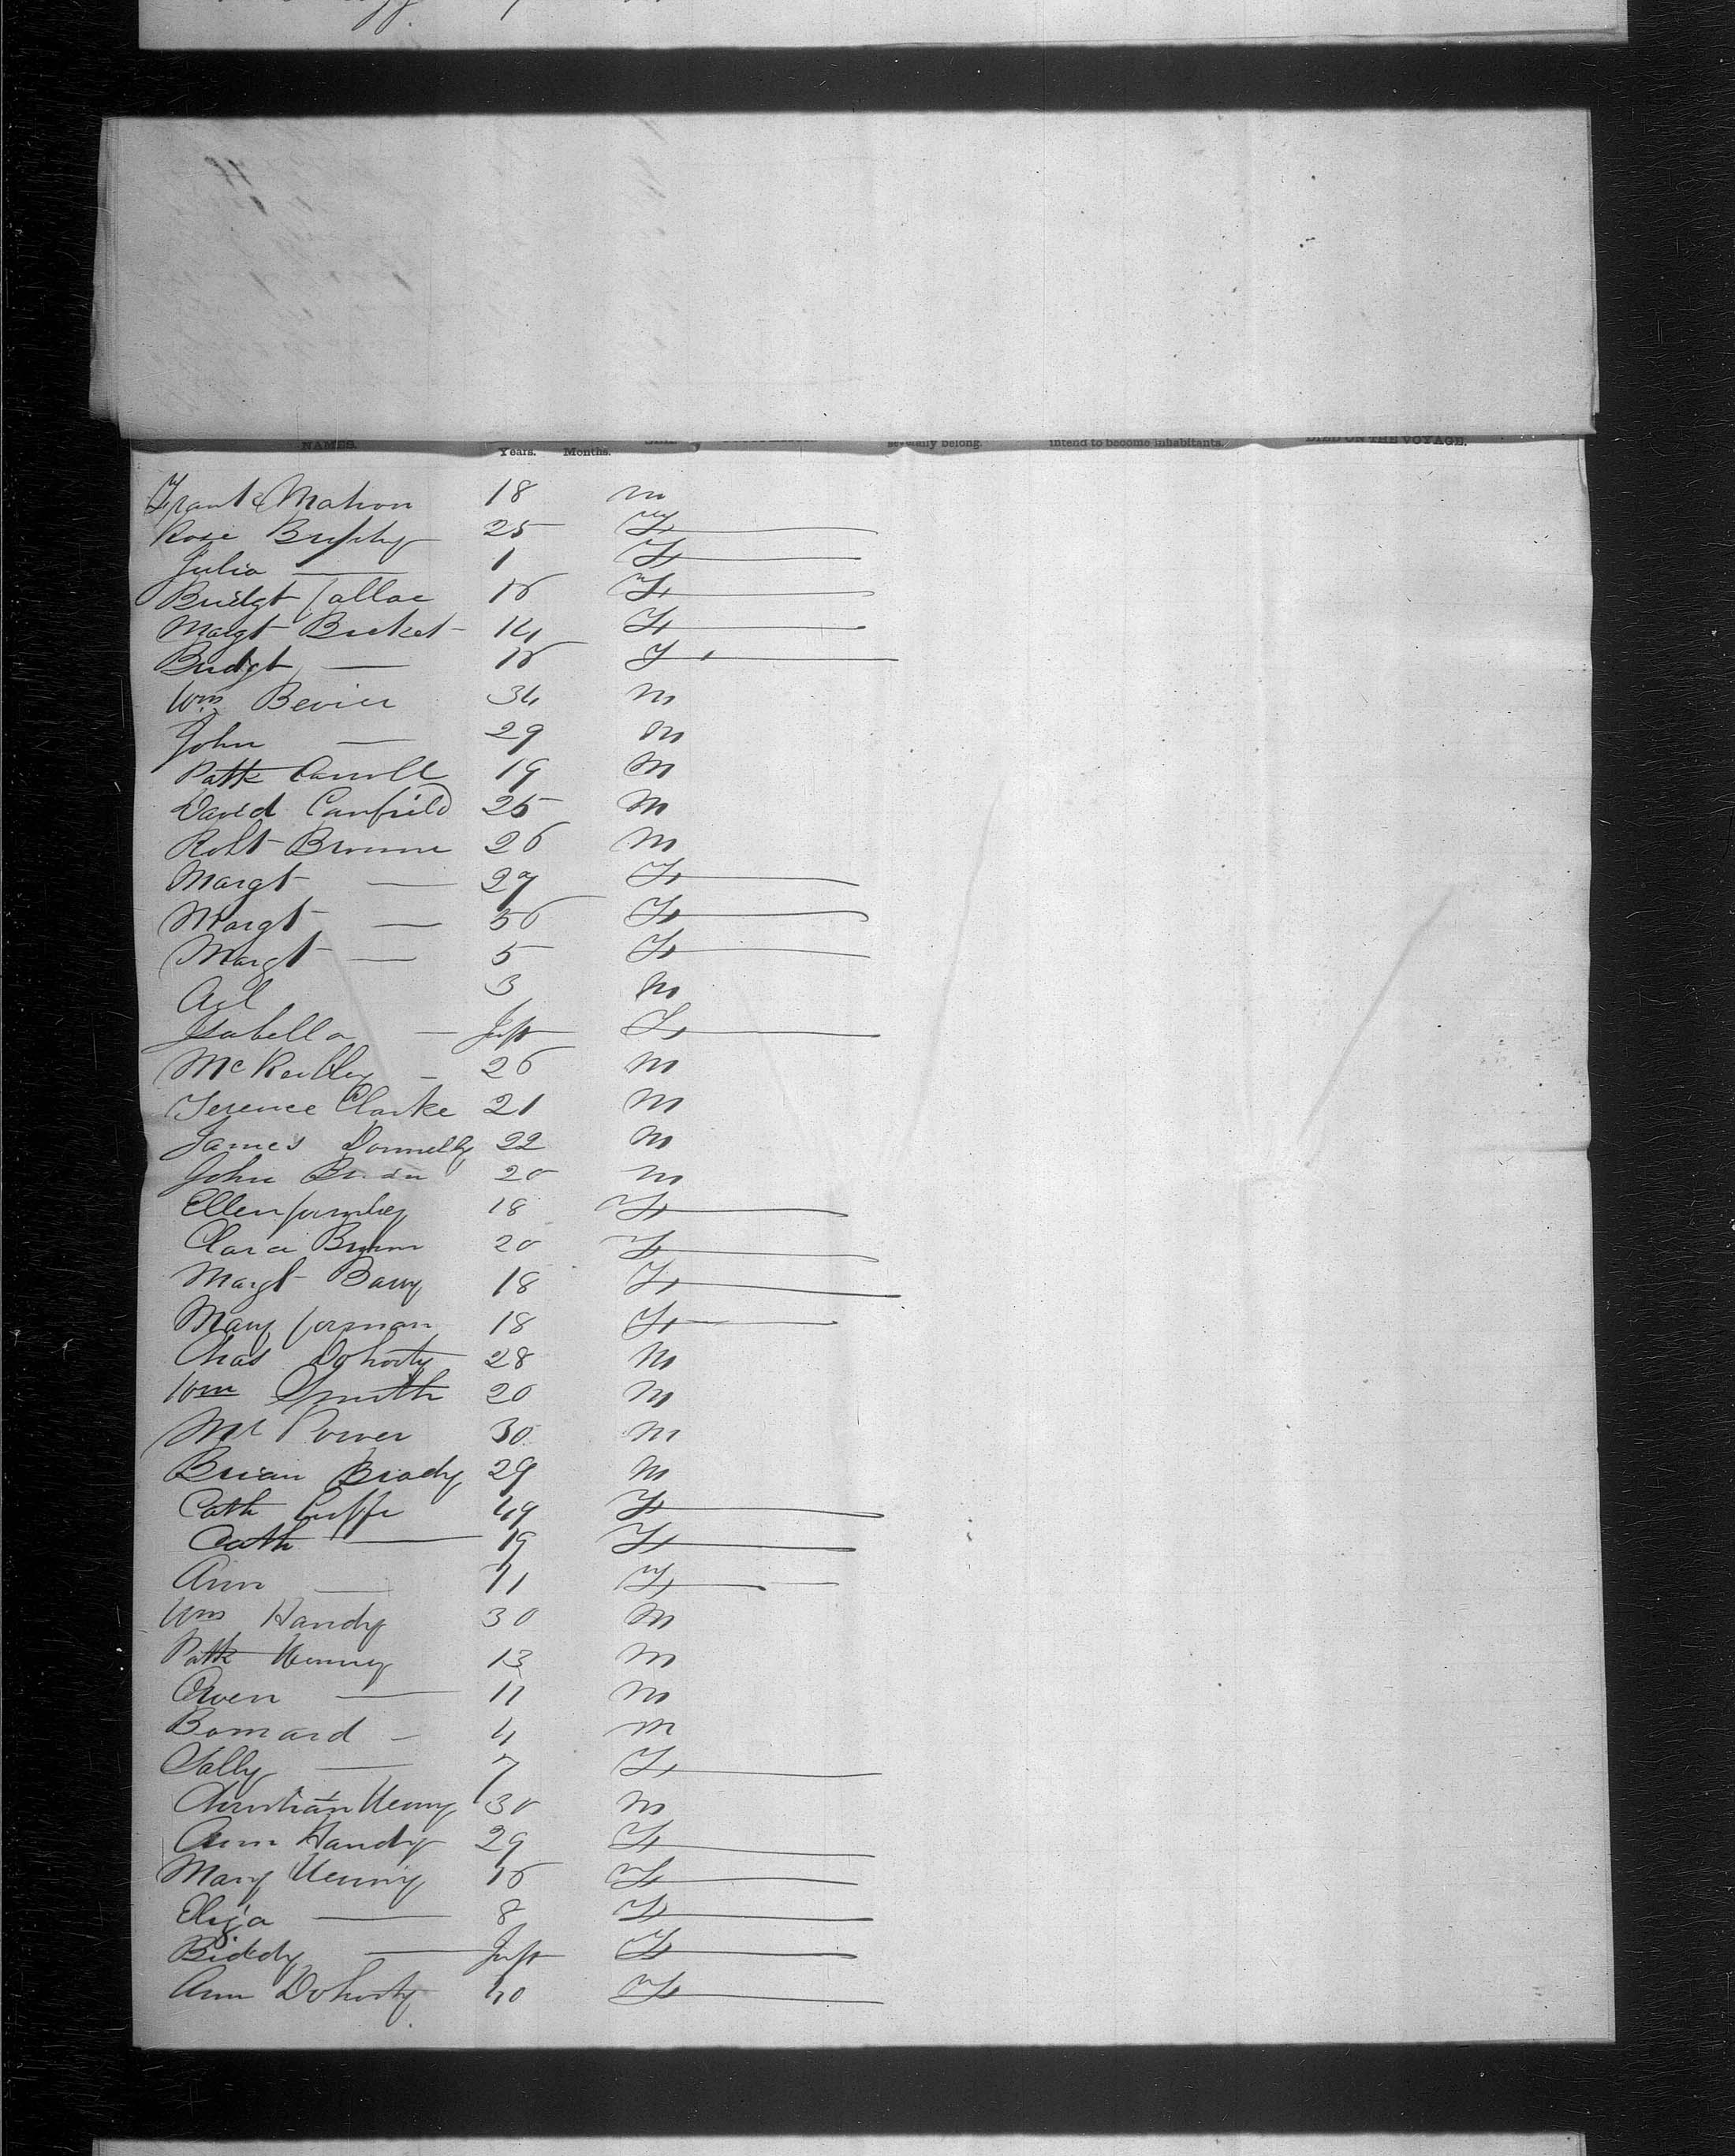 NAMES. Years. Months. intend to become inhabitants. DIED ON THE VOYAGE.
Frank Mahon 18 m
Rose 25 F
Julia — 1 F
Bridgt 16 F
Margt Bucket 14 F
Bridgt — 16 F
Wm Bevier 34 m
John — 29 m
Patk Carroll 19 m
David Canfield 25 m
Robt Browne 26 m
Margt — 27 F
Margt — 56 F
Margt — 5 F
3 m
Isabella — Inft F
Mc Reilly — 26 m
Terence Clarke 21 m
James Donnelly 22 m
John 20 m
Ellen 18 F
Clara 20 F
Margt Barry 18 F
Mary Gorman 18 F
Chas Dohorty 28 m
Wm Smith 20 m
Power 30 m
Brian Brady 29 m
Cath Cuffe 49 F
Cath — 19 F
Ann — 11 F
Wm Handy 30 m
Patk 13 m
Owen — 11 m
— 4 m
Sally — 7 F
Christian 30 m
Ann Handy 29 F
Mary 16 F
Eliza — 8 F
Biddy — Inft F
Ann Dohorty 40 F